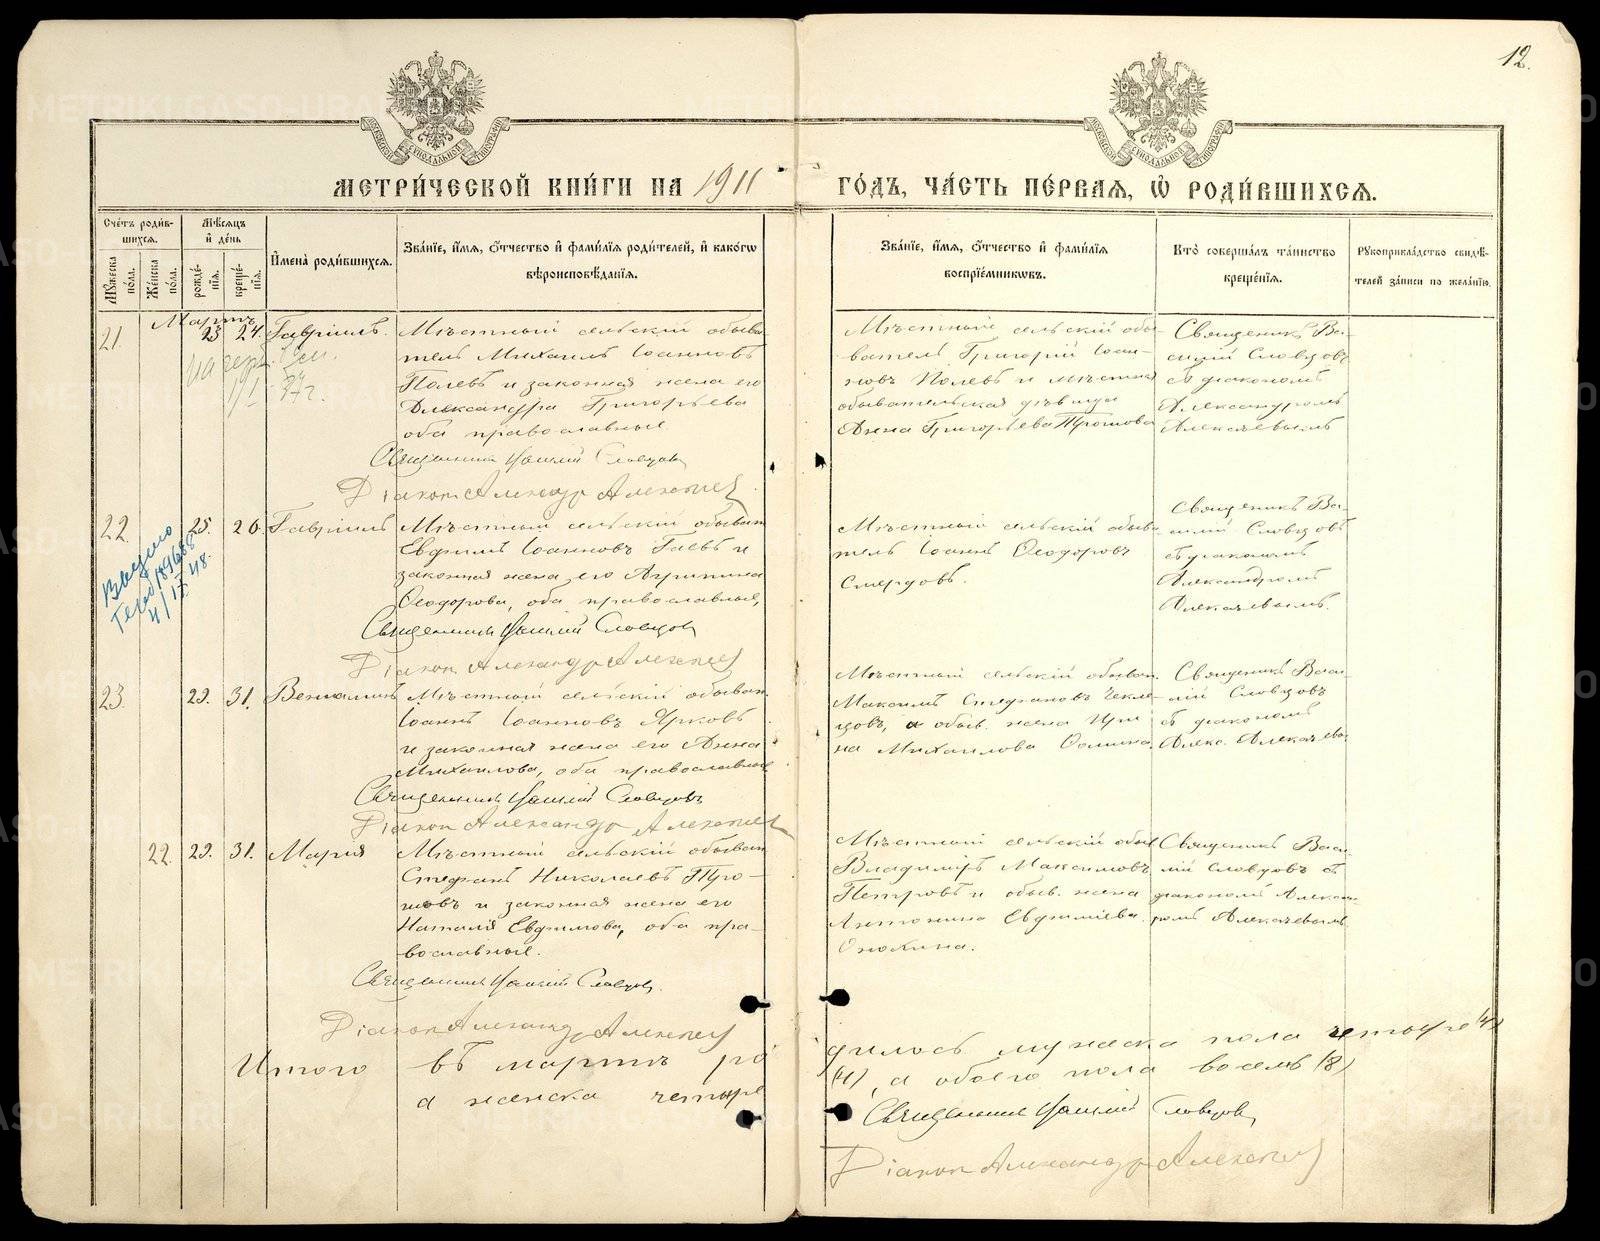 12.
МЕТРИ́ЧЕСКОЙ КНИ́ГИ НА 1911 ГО́ДЪ, ЧА́СТЬ ПЕ́РВАЯ, Ѡ РОДИ́ВШИХСЯ.
Сче́тъ роди́в-
шихся.
Мѹ́жеска по́ла.
Же́нска по́ла.
Мѣ́сяцъ
и де́нь
рожде́-
нїя.
креще́-
нїя.
Имена̀ роди́вшихся.
Зва́нїе, и́мя, ѻ҆́тчество и фами́лїя роди́телей, и како́гѡ
вѣроисповѣ́данїя.
Зва́нїе, и́мя, ѻ҆́тчество и фами́лїя
воспрїе́мникѡвъ.
Кто̀ соверша́лъ та́инство
креще́нїя.
Рѹкоприкла́дство свидѣ́-
телей за́писи по жела́нїю.
Мартъ
21. 23 24. Гавріилъ.
Мѣстный сельскій обыва
тель Михаилъ Іоанновъ
Полевъ и законная жена его
Александра Григорьева
оба православные
Священникъ Василій Словцовъ
Діаконъ Александръ Алекачевъ
Мѣстный сельскій обы-
ватель Григорій Іоан-
новъ Полевъ и мѣстная
обывательская дѣвица
Анна Григорьева Трошкова
Священникъ Ва-
силій Словцовъ
съ діакономъ
Александромъ
Алекачевымъ
22. 25. 26. Гавріилъ
Выдано
4/IX 48.
Мѣстный сельскій обыват
Евфимъ Іоанновъ Гаевъ и
законная жена его Агрипина
Ѳеодорова, оба православные,
Священникъ Василій Словцовъ
Діаконъ Александръ Алекачевъ
Мѣстный сельскій обыва-
тель Іоаннъ Ѳеодоровъ
Смердовъ.
Священникъ Ва-
силій Словцовъ
съ діакономъ
Александромъ
Алекачевымъ.
23. 29. 31. Веніаминъ
Мѣстный сельскій обыват
Іоаннъ Іоанновъ Ярковъ
и законная жена его Анна
Михаилова, оба православные
Священникъ Василій Словцовъ
Діаконъ Александръ Алекачевъ
Мѣстный сельскій обыват.
Максимъ Стефановъ Чекле-
цовъ, и обыв. жена Ири
на Михаилова Осмина
Священникъ Васи-
лій Словцовъ
съ діакономъ
Алекс. Алекачевы
22. 29. 31. Марія
Мѣстный сельскій обыват
Стефанъ Николаевъ Тро-
шковъ и законная жена его
Наталія Евфимова, оба пра-
вославные.
Священникъ Василій Словцовъ.
Діаконъ Александръ Алекачевъ
Мѣстный сельскій обыв
Владиміръ Максимовъ
Петровъ и обыв. жена
Антонина Евфиміева
Онохина.
Священникъ Васи-
лій Словцовъ съ
діакономъ Алексан-
ромъ Алекачевымъ
Итого въ мартѣ ро
дилось мужеска пола четыре (4)
а женска четыре
(4), а обоего пола восемь (8)
Священникъ Василій Словцовъ
Діаконъ Александръ Алекачевъ
METRIKI.GASO-URAL.RU